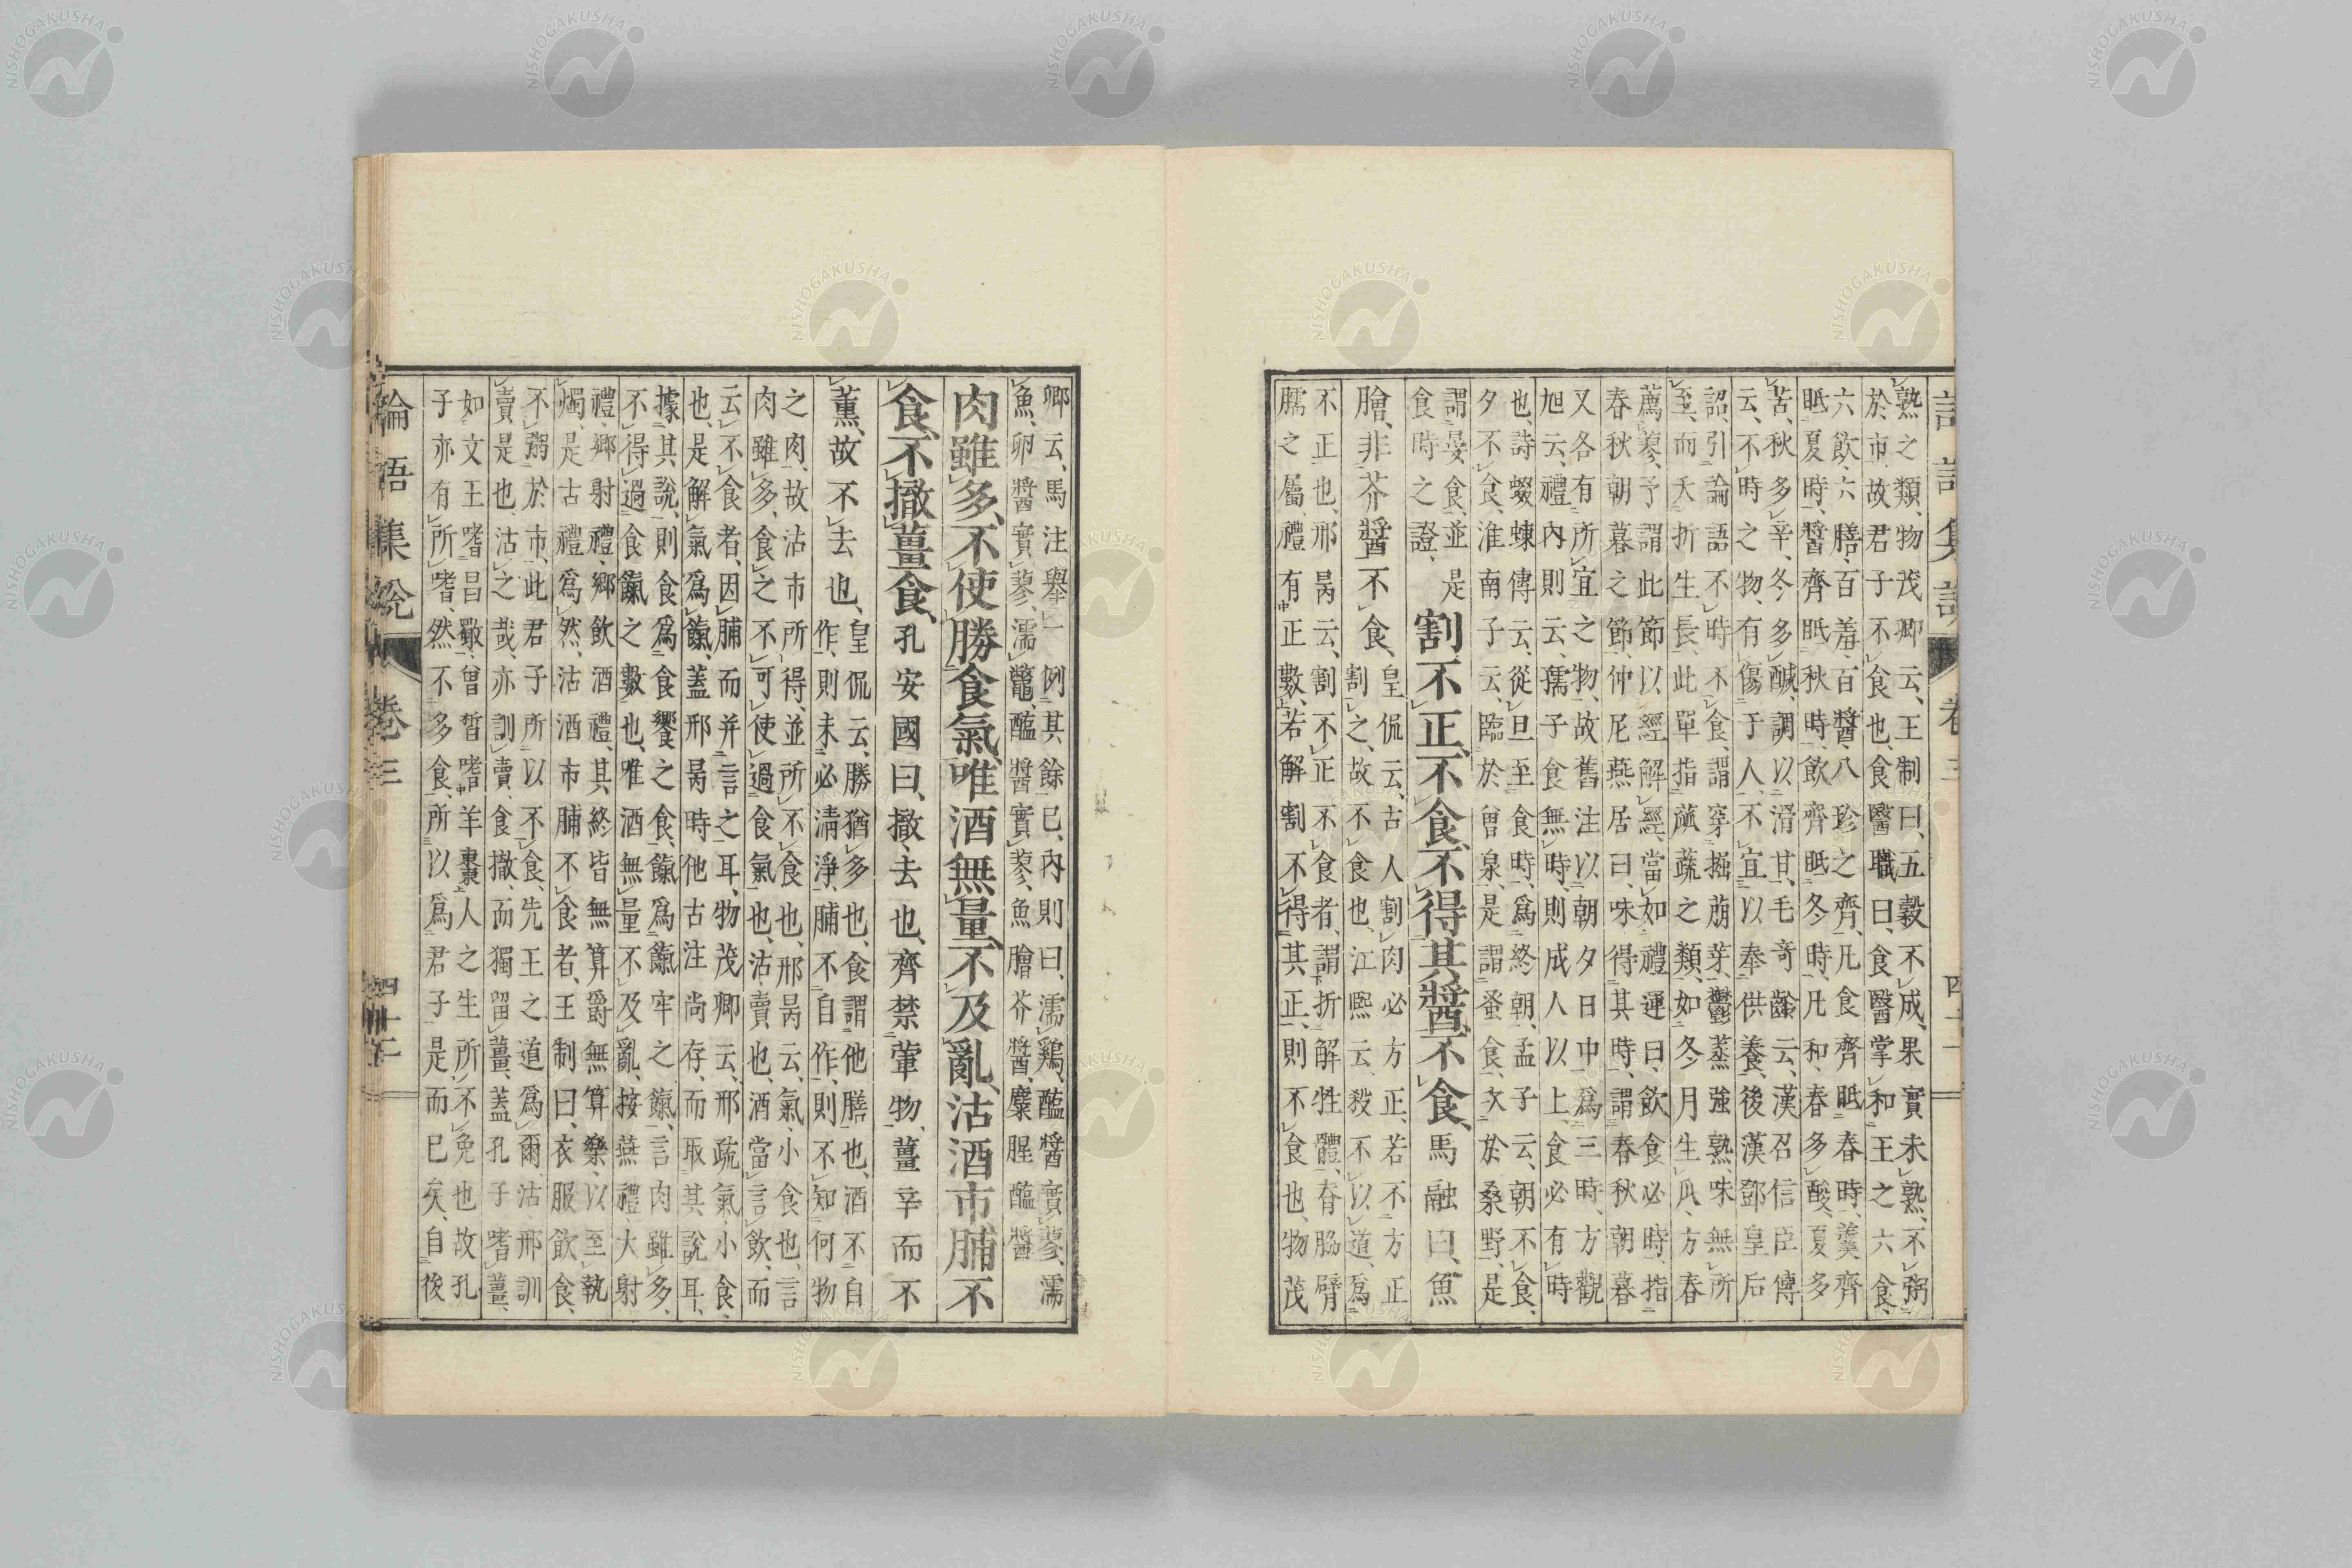 論語集說 卷三 四十二
熟之類、物茂卿云、王制曰、五穀不成、果實未熟、不粥
於市、故君子不食也、食醫職曰、食醫掌和王之六食、
六飲、六膳、百羞、百醬、八珍之齊、凡食齊眡春時、羹齊
眡夏時、醬齊眡秋時、飲齊眡冬時、凡和、春多酸、夏多
苦、秋多辛、冬多鹹、調以滑甘、毛奇齡云、漢召信臣傳
云、不時之物、有傷于人、不宜以奉供養、後漢鄧皇后
詔、引論語不時不食、謂穿掘萠芽、鬱蒸強熟、味無所
至、而夭折生長、此單指蓏蔬之類、如冬月生瓜、方春
薦蓼、予謂此節以經解經、當如禮運曰、飲食必時、指
春秋朝暮之節、仲尼燕居曰、味得其時、謂春秋朝暮
又各有所宜之物、故舊注以朝夕日中爲三時、方觀
旭云、禮內則云、孺子食無時、則成人以上、食必有時
也、詩蝃蝀傳云、從旦至食時、爲終朝、孟子云、朝不食、
夕不食、淮南子云、臨於曾泉、是謂蚤食、次於桑野、是
謂晏食、並是
食時之證、
割不正、不食、不得其醬、不食、馬融曰、魚
膾、非芥醬不食、
皇侃云、古人割肉必方正、若不方正
割之、故不食也、江熙云、殺不以道、爲
不正也、邢昺云、割不正不食者、謂折解牲體、脊脇臂
臑之屬、禮有正數、若解割不得其正、則不食也、物茂
卿云、馬注舉一例、其餘已、內則曰、濡鷄、醢醬實蓼、濡
魚、卵醬實蓼、濡鼈、醢醬實蓼、魚膾芥醬、麋腥醢醬
肉雖多、不使勝食氣、唯酒無量、不及亂、沽酒市脯不
食、不撤薑食、孔安國曰、撤、去也、齊禁葷物、薑辛而不
薰、故不去也、
皇侃云、勝猶多也、食謂他膳也、酒不自
作、則未必淸淨、脯不自作、則不知何物
之肉、故沽市所得、並所不食也、邢昺云、氣、小食也、言
肉雖多、食之不可使過食氣也、沽、賣也、酒當言飲、而
云不食者、因脯而并言之耳、物茂卿云、邢疏氣、小食
也、是解氣爲餼、蓋邢昺時他古注尚存、而取其說耳、
據其說、則食爲食饗之食、餼爲餼牢之餼、言肉雖多、
不得過食餼之數也、唯酒無量不及亂、按燕禮、大射
禮、鄉射禮、鄉飲酒禮、其終皆無算爵無算樂、以至執
燭、是古禮爲然、沽酒市脯不食者、王制曰、衣服飲食、
不粥於市、此君子所以不食、先王之道爲爾、沽邢訓
賣、是也、沽之哉、亦訓賣、食撤、而獨留薑、蓋孔子嗜薑、
如文王嗜昌歜、曾晳嗜羊棗、人之生所不免也、故孔
子亦有所嗜、然不多食、所以爲君子、是而已矣、自後
論語集說 卷三 四十二